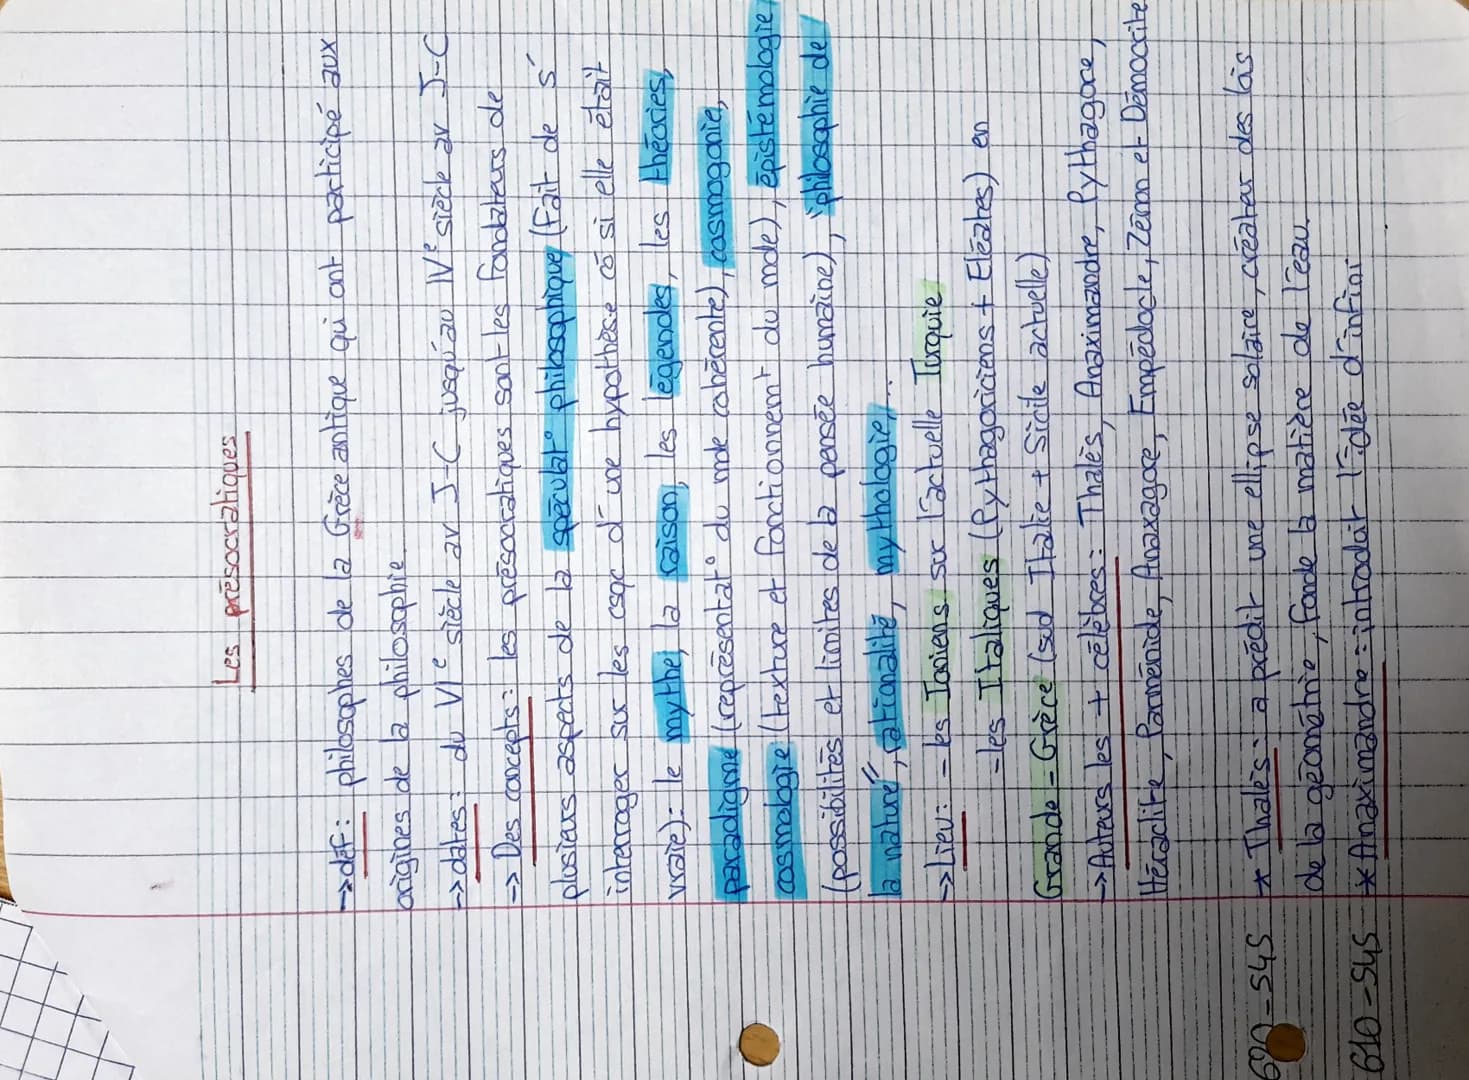 Les présocratiques
→ déf : philosophes de la Grèce antique qui ont participé aux
origines de la philosophie.
→ dates : du VIe siècle av J-C jusqu'au IVe siècle av J-C
→ Des concepts : les présocratiques sont les fondateurs de
plusieurs aspects de la spéculat° philosophique (fait de s'
interroger sur les csqc d'une hypothèse cô si elle était
vraie) : le mythe, la raison, les légendes, les théories,
paradigme (représentat° du mde cohérente), cosmogonie,
cosmologie (texture et fonctionnemt du mde), épistémologie
(possibilités et limites de la pensée humaine), "philosophie de
la nature", rationalité, mythologie, ...
→ Lieu : - les Ioniens sur l'actuelle Turquie
- les Italiques (Pythagoriciens + Eléates) en
Grande-Grèce (sud Italie + Sicile actuelle)
→ Auteurs les + célèbres : Thalès, Anaximandre, Pythagore,
Héraclite, Parménide, Anaxagore, Empédocle, Zénon et Démocrite
* Thalès : a prédit une ellipse solaire, créateur des lois
de la géométrie, fonde la matière de l'eau.
610-545 * Anaximandre : introduit l'idée d'infini